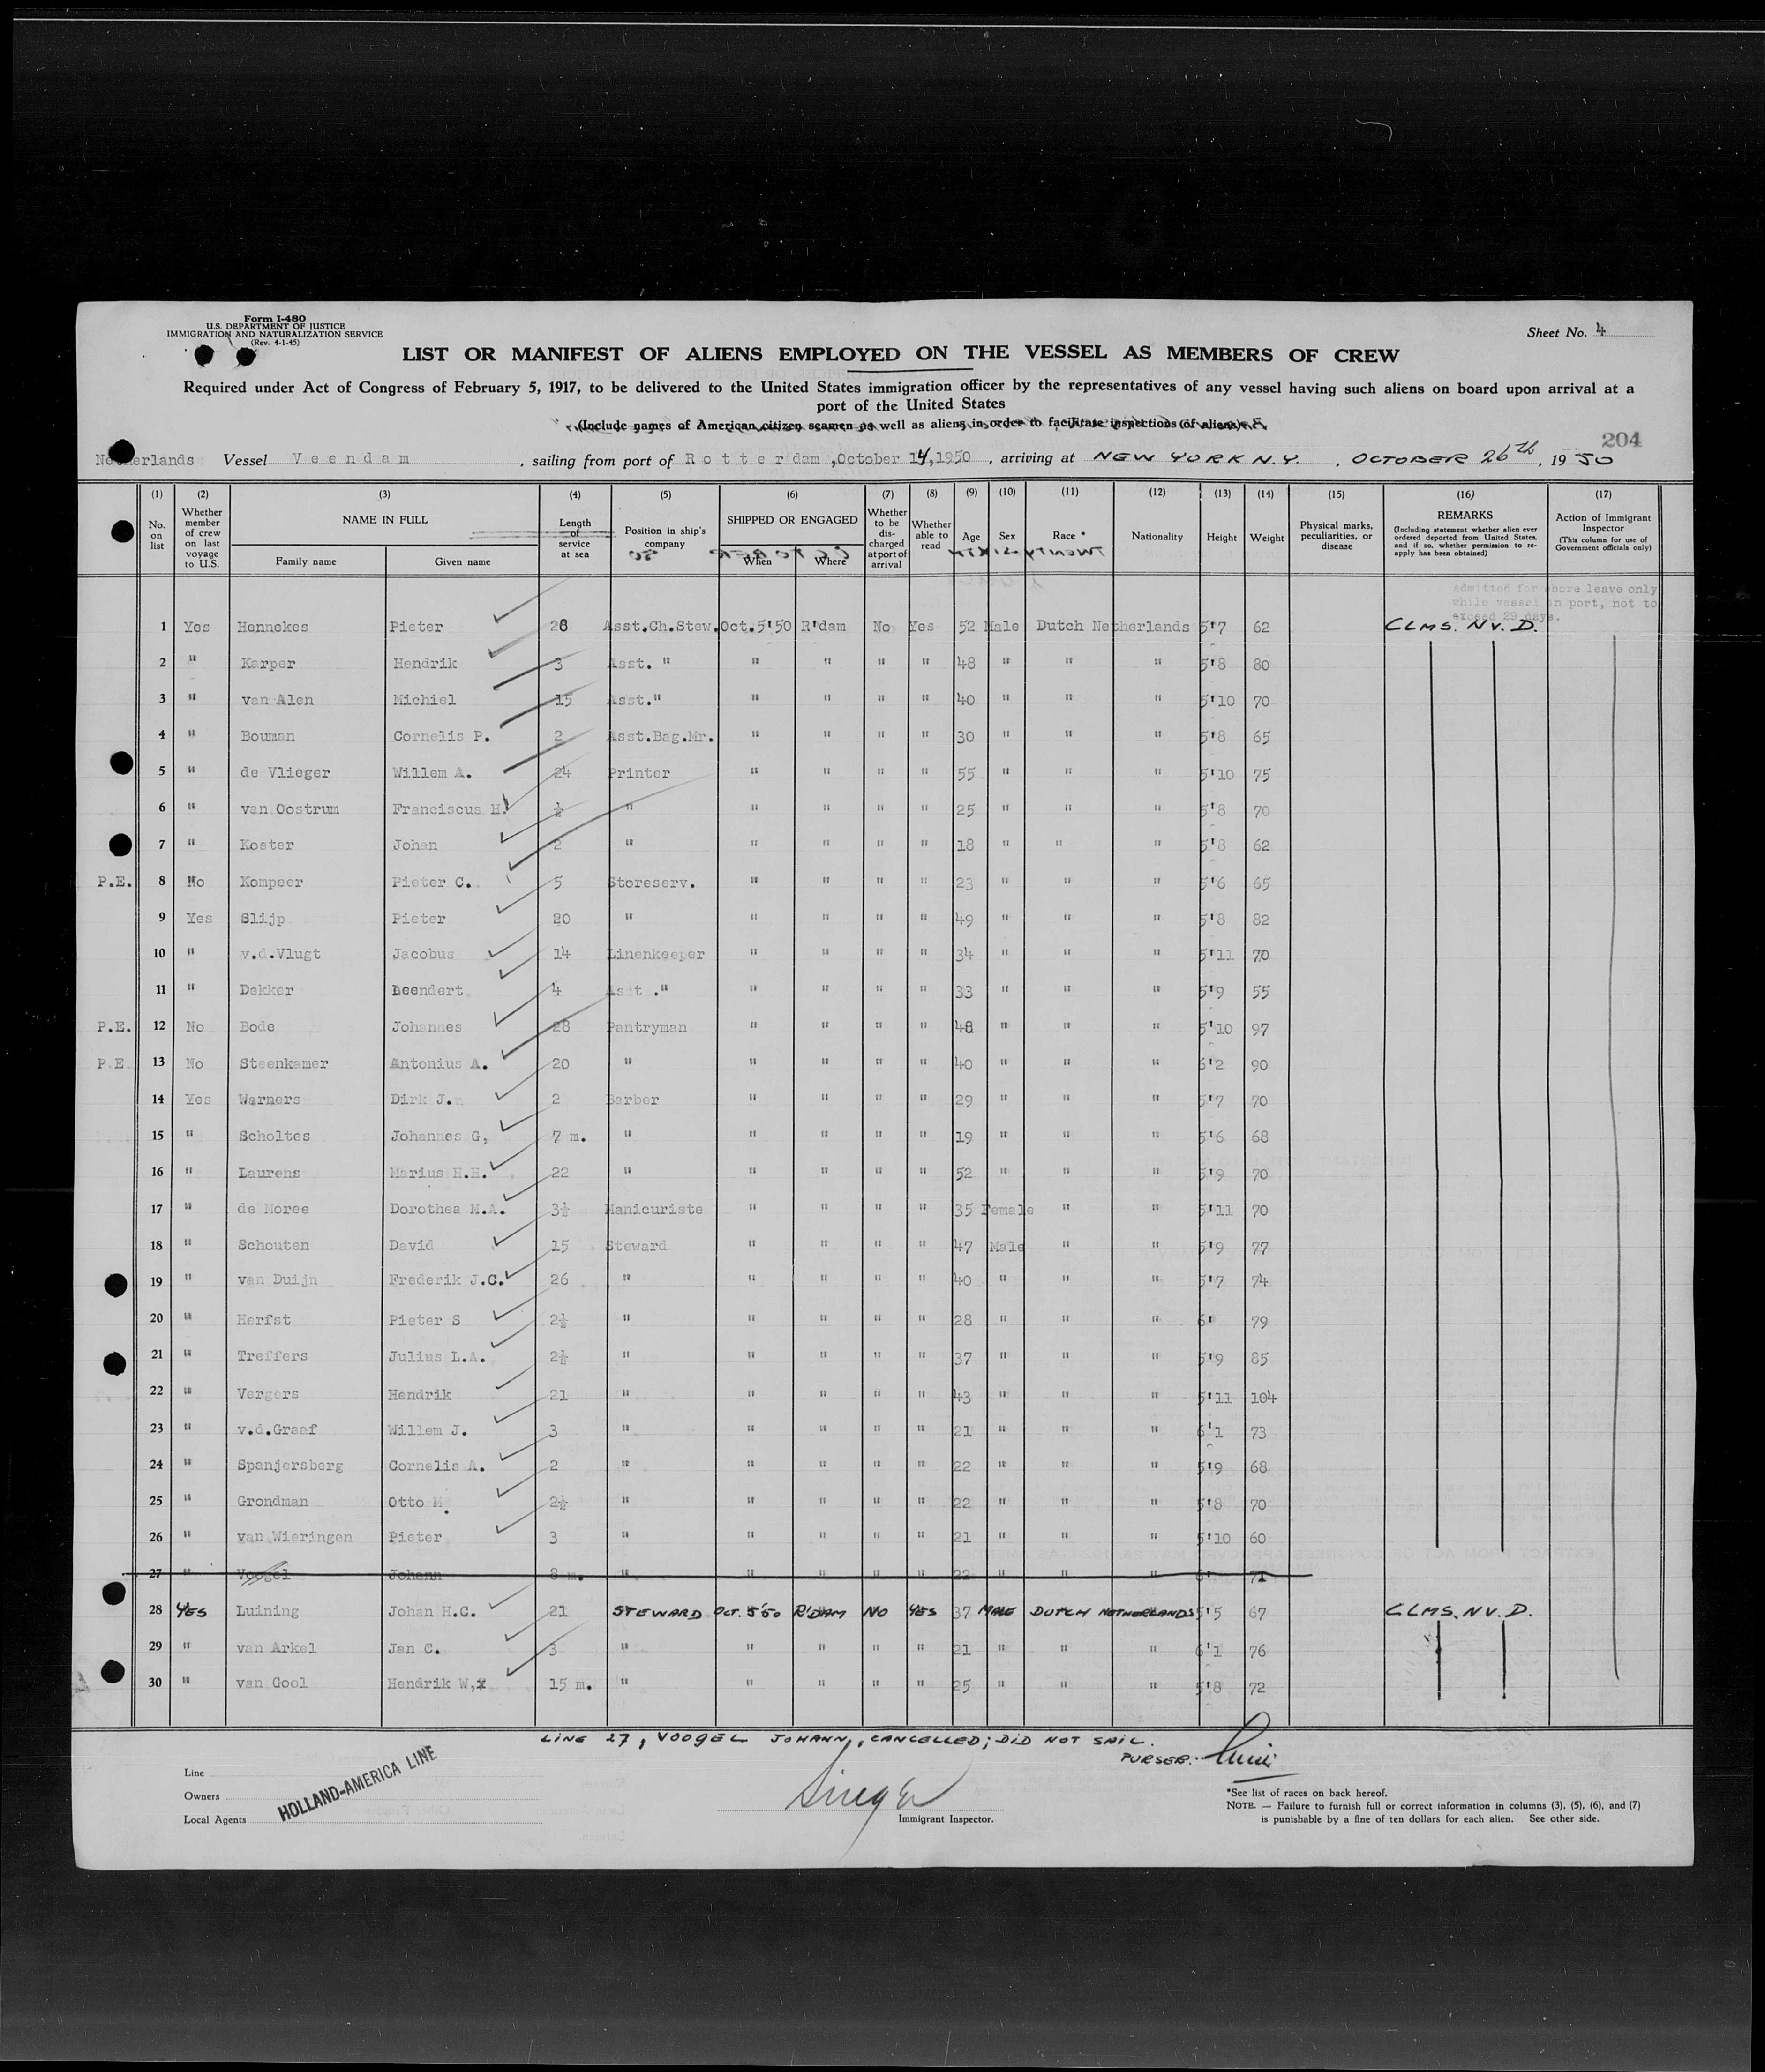 Form I-480
U.S. DEPARTMENT OF JUSTICE
IMMIGRATION AND NATURALIZATION SERVICE
(Rev. 4-1-45)
Sheet No. 4
LIST OR MANIFEST OF ALIENS EMPLOYED ON THE VESSEL AS MEMBERS OF CREW
Required under Act of Congress of February 5, 1917, to be delivered to the United States immigration officer by the representatives of any vessel having such aliens on board upon arrival at a
port of the United States
(Include names of American citizen seamen as well as aliens in order to facilitate inspections of aliens)
204
Netherlands Vessel Veendam, sailing from port of Rotterdam, October 14, 1950, arriving at NEW YORK N.Y., OCTOBER 26th, 1950
(1) (2) (3) (4) (5) (6) (7) (8) (9) (10) (11) (12) (13) (14) (15) (16) (17)
No. on list | Whether member of crew on last voyage to U.S. | NAME IN FULL Family name Given name | Length of service at sea | Position in ship's company | SHIPPED OR ENGAGED When Where | Whether to be discharged at port of arrival | Whether able to read | Age | Sex | Race * | Nationality | Height | Weight | Physical marks, peculiarities, or disease | REMARKS (Including statement whether alien ever ordered deported from United States, and if so, whether permission to re-apply has been obtained) | Action of Immigrant Inspector (This column for use of Government officials only)
Admitted for shore leave only
while vessel in port, not to
exceed 29 days.
1 Yes Hennekes Pieter 28 Asst.Ch.Stew. Oct.5'50 R'dam No Yes 52 Male Dutch Netherlands 5'7 62 CLMS. NV. D.
2 " Karper Hendrik 3 Asst. " " " " " 48 " " " 5'8 80
3 " van Alen Michiel 15 Asst." " " " " 40 " " " 5'10 70
4 " Bouman Cornelis P. 2 Asst.Bag.Mr. " " " " 30 " " " 5'8 65
5 " de Vlieger Willem A. 24 Printer " " " " 55 " " " 5'10 75
6 " van Oostrum Franciscus H. ½ " " " " " 25 " " " 5'8 70
7 " Koster Johan 2 " " " " " 18 " " " 5'8 62
P.E. 8 No Kompeer Pieter C. 5 Storeserv. " " " " 23 " " " 5'6 65
9 Yes Slijp Pieter 20 " " " " " 49 " " " 5'8 82
10 " v.d.Vlugt Jacobus 14 Linenkeeper " " " " 34 " " " 5'11 70
11 " Dekker Leendert 4 Asst ." " " " " 33 " " " 5'9 55
P.E. 12 No Bode Johannes 28 Pantryman " " " " 48 " " " 5'10 97
P.E. 13 No Steenkamer Antonius A. 20 " " " " " 40 " " " 6'2 90
14 Yes Warners Dirk J. 2 Barber " " " " 29 " " " 5'7 70
15 " Scholtes Johannes G, 7 m. " " " " " 19 " " " 5'6 68
16 " Laurens Marius H.H. 22 " " " " " 52 " " " 5'9 70
17 " de Moree Dorothea M.A. 3½ Manicuriste " " " " 35 Female " " 5'11 70
18 " Schouten David 15 Steward " " " " 47 Male " " 5'9 77
19 " van Duijn Frederik J.C. 26 " " " " " 40 " " " 5'7 74
20 " Herfst Pieter S 2½ " " " " " 28 " " " 6' 79
21 " Treffers Julius L.A. 2½ " " " " " 37 " " " 5'9 85
22 " Vergers Hendrik 21 " " " " " 43 " " " 5'11 104
23 " v.d.Graaf Willem J. 3 " " " " " 21 " " " 6'1 73
24 " Spanjersberg Cornelis A. 2 " " " " " 22 " " " 5'9 68
25 " Grondman Otto M. 2½ " " " " " 22 " " " 5'8 70
26 " van Wieringen Pieter 3 " " " " " 21 " " " 5'10 60
27 " Voogel Johann 8 m. " " " " " 22 " " " 6' 71
28 YES Luining Johan H.C. 21 STEWARD OCT. 5'50 R'DAM NO YES 37 MALE DUTCH NETHERLANDS 5'5 67 CLMS. NV. D.
29 " van Arkel Jan C. 3 " " " " " 21 " " " 6'1 76
30 " van Gool Hendrik W, 15 m. " " " " " 25 " " " 5'8 72
LINE 27, VOOGEL JOHANN, CANCELLED; DID NOT SAIL.
PURSER.
Line
Owners
Local Agents
HOLLAND-AMERICA LINE
Immigrant Inspector.
*See list of races on back hereof.
NOTE. — Failure to furnish full or correct information in columns (3), (5), (6), and (7)
is punishable by a fine of ten dollars for each alien. See other side.